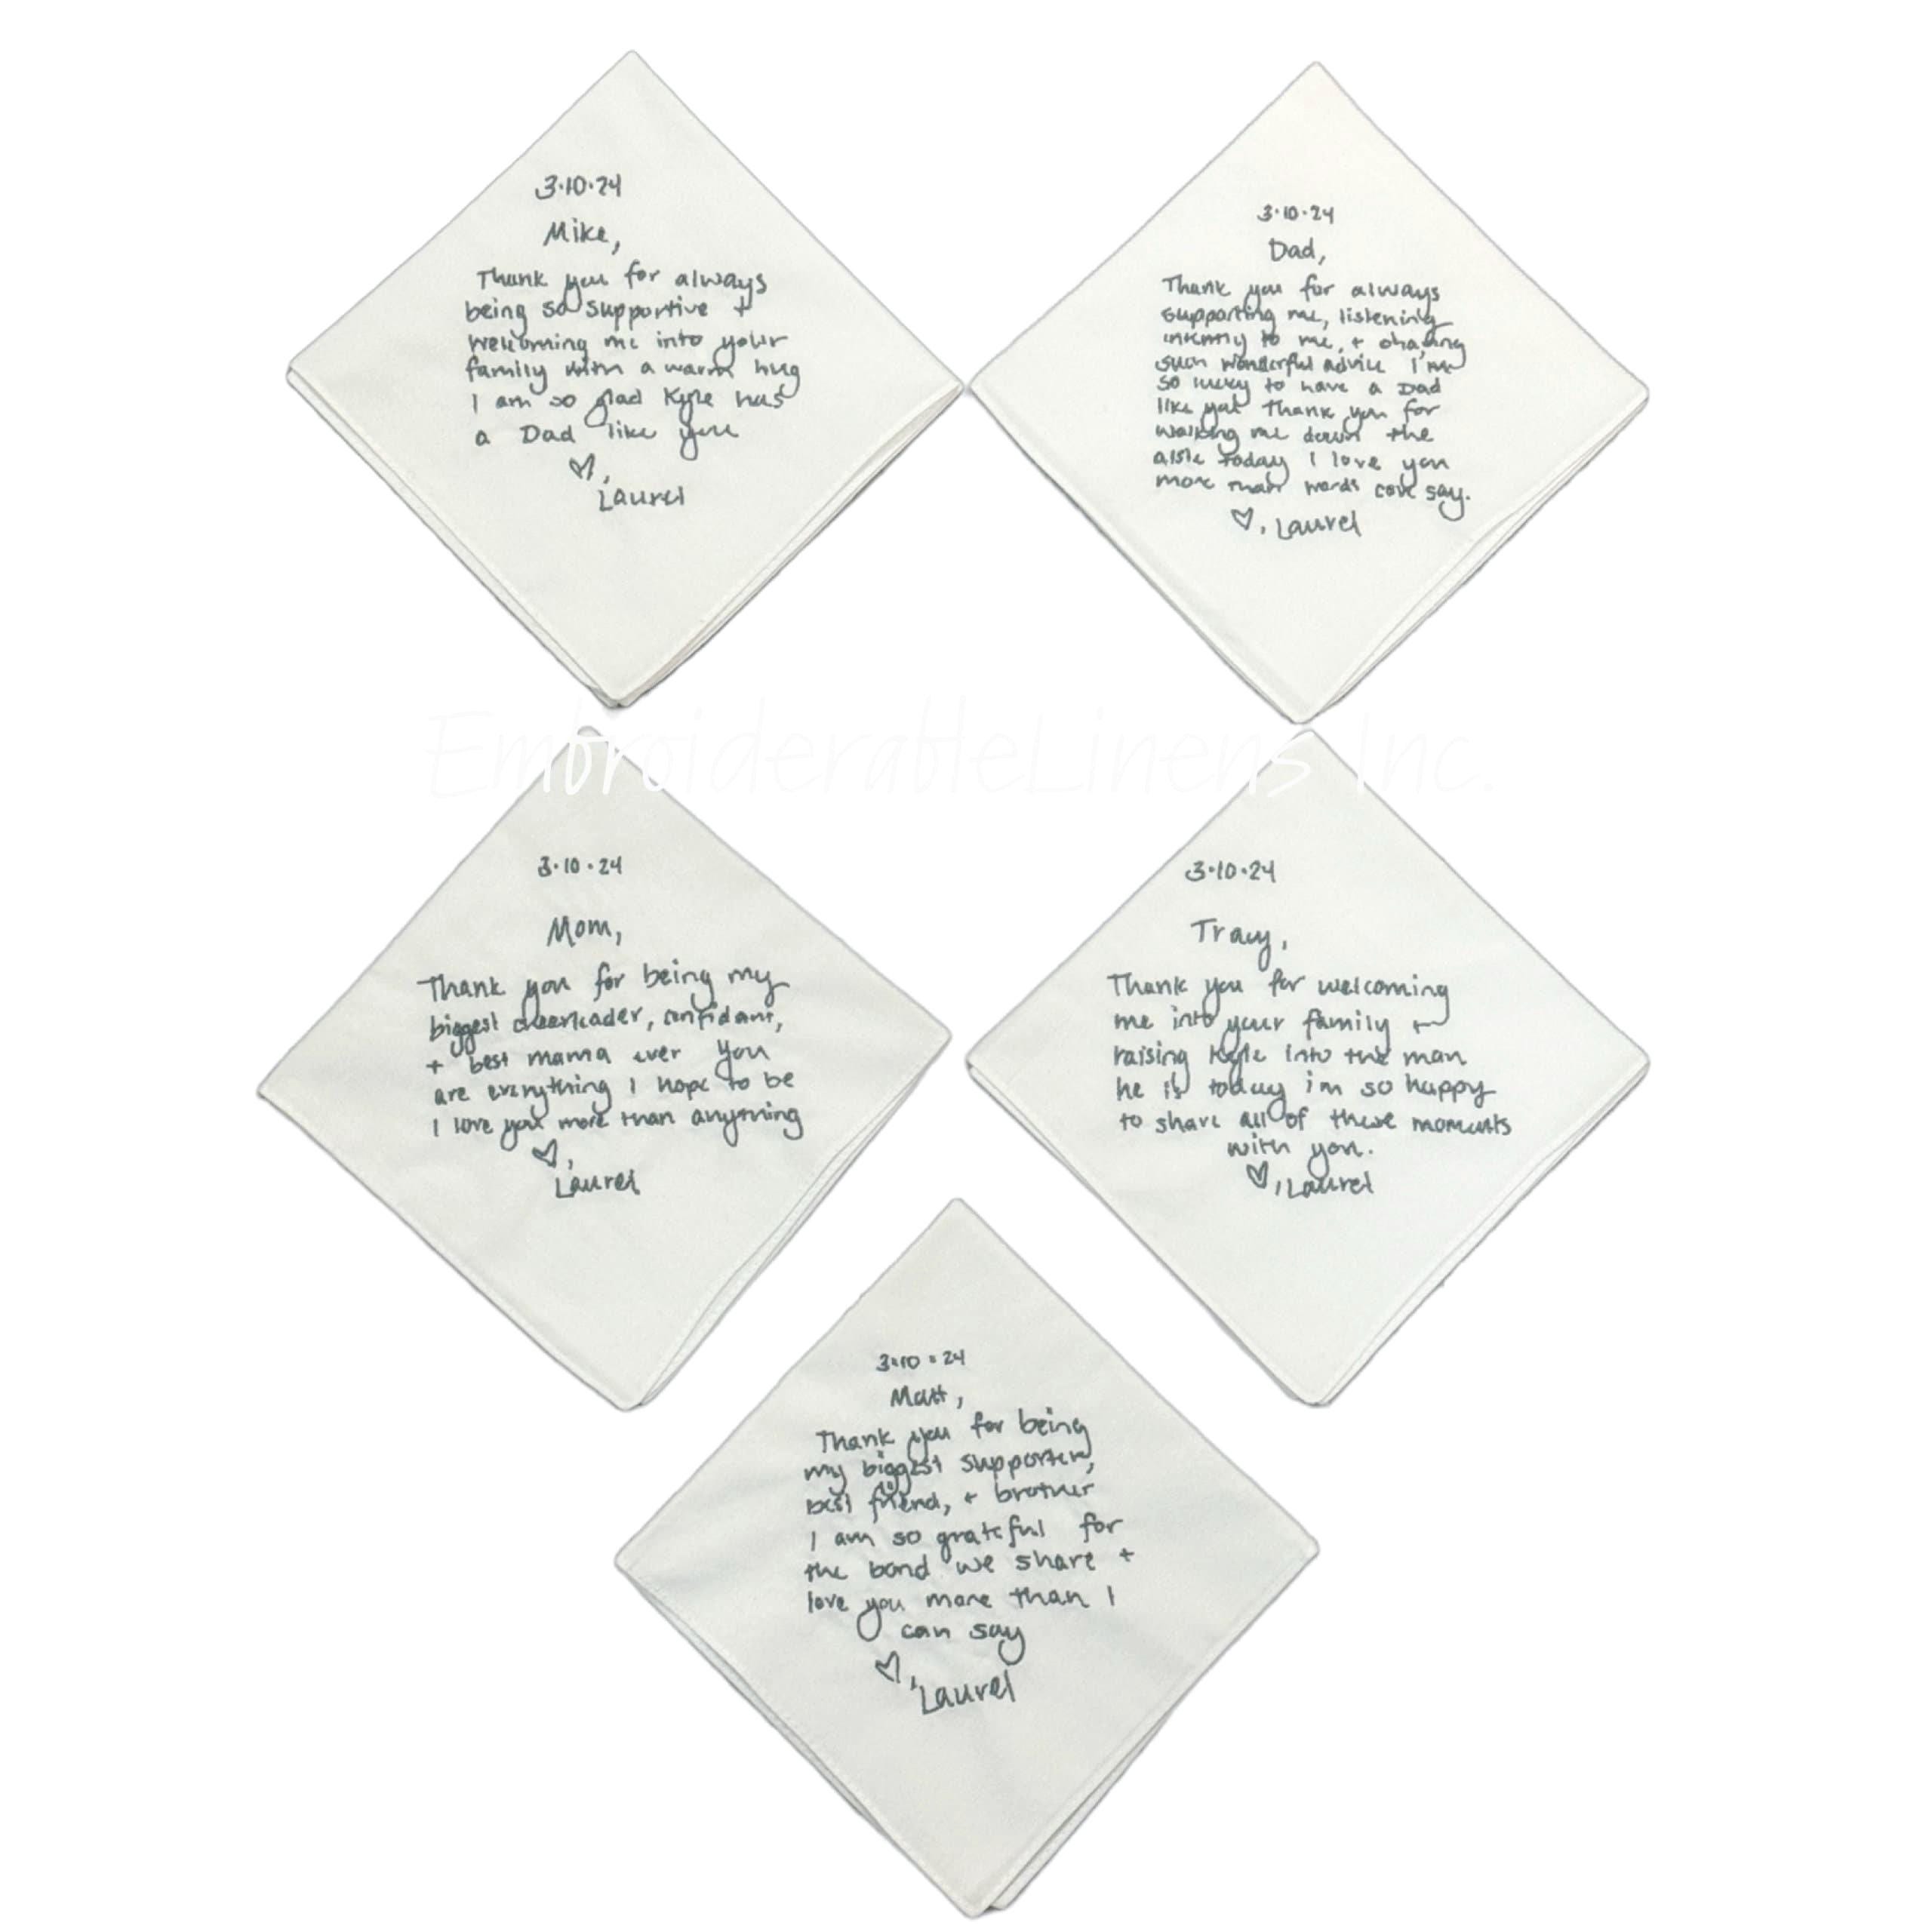 3·10·24
Mike,
Thank you for always
being so supportive +
welcoming me into your
family with a warm hug
I am so glad Kyle has
a Dad like you
♡,
Laurel
3·10·24
Dad,
Thank you for always
supporting me, listening
to me, + sharing
such wonderful advice I'm
so lucky to have a Dad
like you Thank you for
walking me down the
aisle today I love you
more than words can say.
♡, Laurel
EmbroiderableLinens Inc.
3·10·24
Mom,
Thank you for being my
biggest cheerleader, confidant,
+ best mama ever You
are everything I hope to be
I love you more than anything
♡,
Laurel
3·10·24
Tracy,
Thank you for welcoming
me into your family +
raising Kyle into the man
he is today im so happy
to share all of these moments
with you.
♡, Laurel
3·10·24
Matt,
Thank you for being
my biggest supporter,
best friend, + brother
I am so grateful for
the bond we share +
love you more than I
can say
♡,
Laurel